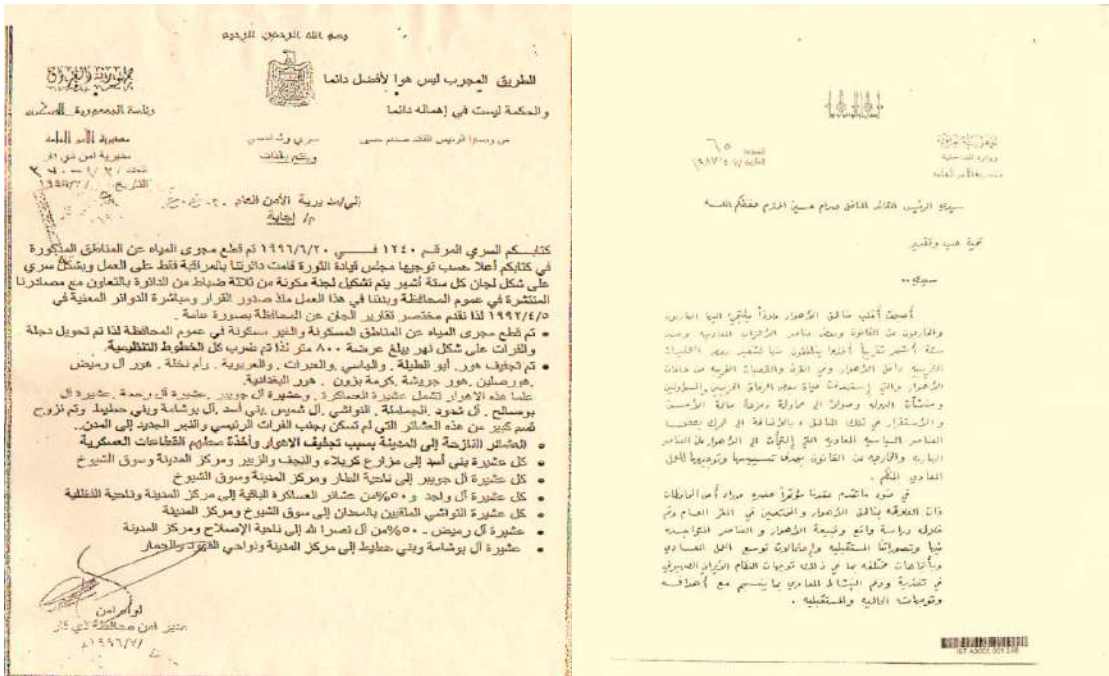 بسم الله الرحمن الرحيم
الطريق المجرب ليس هوا لأفضل دائما
والحكمة ليست في إهماله دائما
من وصايا الرئيس القائد صدام حسين
جمهورية العراق
رئاسة الجمهورية
مديرية الأمن العامة
مديرية امن ذي قار
سري
إلى/مديرية الأمن العام
م/ إجابة
كتابكم السري المرقم ١٢٤٠ فـي ١٩٩٦/٦/٢٠ تم قطع مجرى المياه عن المناطق المذكورة
في كتابكم أعلا حسب توجيها مجلس قيادة الثورة قامت دائرتنا بالمراقبة فقط على العمل وبشكل سري
على شكل لجان كل ستة أشهر يتم تشكيل لجنة مكونة من ثلاثة ضباط من الدائرة بالتعاون مع مصادرنا
المنتشرة في عموم المحافظة وبدنا في هذا العمل منذ صدور القرار ومباشرة الدوائر المعنية في
١٩٩٢/٤/٥ لذا نقدم مختصر تقارير الجان عن المحافظة بصورة عامة .
• تم قطع مجرى المياه عن المناطق المسكونة والغير مسكونة في عموم المحافظة لذا تم تحويل دجلة
والفرات على شكل نهر يبلغ عرضة ٨٠٠ متر لذا تم ضرب كل الخطوط التنظيمية.
• تم تجفيف هور. أبو الطيلة . والياسي .والعبرات . والعريوية . رام نخلة . هور ال رميض
.هورصلين .هور جريشة .كرمة بزون . هور البغدانية.
علما هذه الاهوار تشمل عشيرة العساكرة . وعشيرة آل جويبر .عشيرة آل رحمة .عشيرة ال
بوصالح . آل شدود .الجماملة . النواشي .آل شميس .بني أسد .آل بوشامة وبني حطيط وتم نزوح
قسم كبير من هذه العشائر التي لم تسكن بجنب الفرات الرئيسي والنهر الجديد إلى المدن..
• العشائر النازحة إلى المدينة بسبب تجفيف الاهوار وأخذة معظم القطاعات العسكرية
• كل عشيرة بني أسد إلى مزارع كربلاء والنجف والزبير ومركز المدينة وسوق الشيوخ
• كل عشيرة آل جويبر إلى ناحية الطار ومركز المدينة وسوق الشيوخ
• كل عشيرة آل واجد و ٥٠%من عشائر العساكرة الباقية إلى مركز المدينة وناحية
• كل عشيرة النواشي الملقبين بالمعدان إلى سوق الشيوخ ومركز المدينة
• عشيرة آل رميض . ٥٠%من آل نصرا لله إلى ناحية الإصلاح ومركز المدينة
• عشيرة آل بوشامة وبني حطيط إلى مركز المدينة ونواحي الفهود والحمار
لواء امن
مدير امن محافظة ذي قار
١٩٩٦/٧/
وزارة الداخلية
مديرية الأمن العامة
العدد ٦٥
سيدي الرئيس القائد المناضل صدام حسين المحترم حفظكم الله
تحية حب وتقدير
سيدي ..
أصبحت أغلب مناطق الأهوار ملاذاً يلتجئ اليها الهاربون
والخارجون عن القانون وبعض عناصر الأحزاب المعاديه ومنذ
ستة أشهر تقريباً أخذوا ينطلقون منها لتنفيذ بعض العمليات
التخريبيه داخل الأهوار وفي القرى والقصبات القريبه من حافات
الأهوار والتي إستهدفت حياة بعض الرفاق الحزبيين والمسؤولين
ومنشآت الدوله وصولاً الى محاولة زعزعة حالة الأمن
والأستقرار في تلك المناطق ، بالأضافة الى تحرك بعض
العناصر السياسيه المعاديه التي إلتجأت الى الأهوار على العناصر
الهاربه والخارجه عن القانون بهدف تسييسها وتوجيهها للعمل
المعادي المنظم .
في ضوء ماتقدم عقدنا مؤتمراً حضره مدراء أمن المحافظات
ذات العلاقه بمناطق الأهوار والمختصين في المقر العام وتم
خلاله دراسة واقع وطبيعة الأهوار و العناصر المتواجده
فيها وتصوراتنا المستقبليه وإحتمالات توسع العمل المعادي
وبأتجاهات مختلفه بما في ذلك توجهات النظام الايراني الصهيوني
في تغذية ودعم النشاط المعادي بما ينسجم مع أهدافه
وتوجهاته الحاليه والمستقبليه .